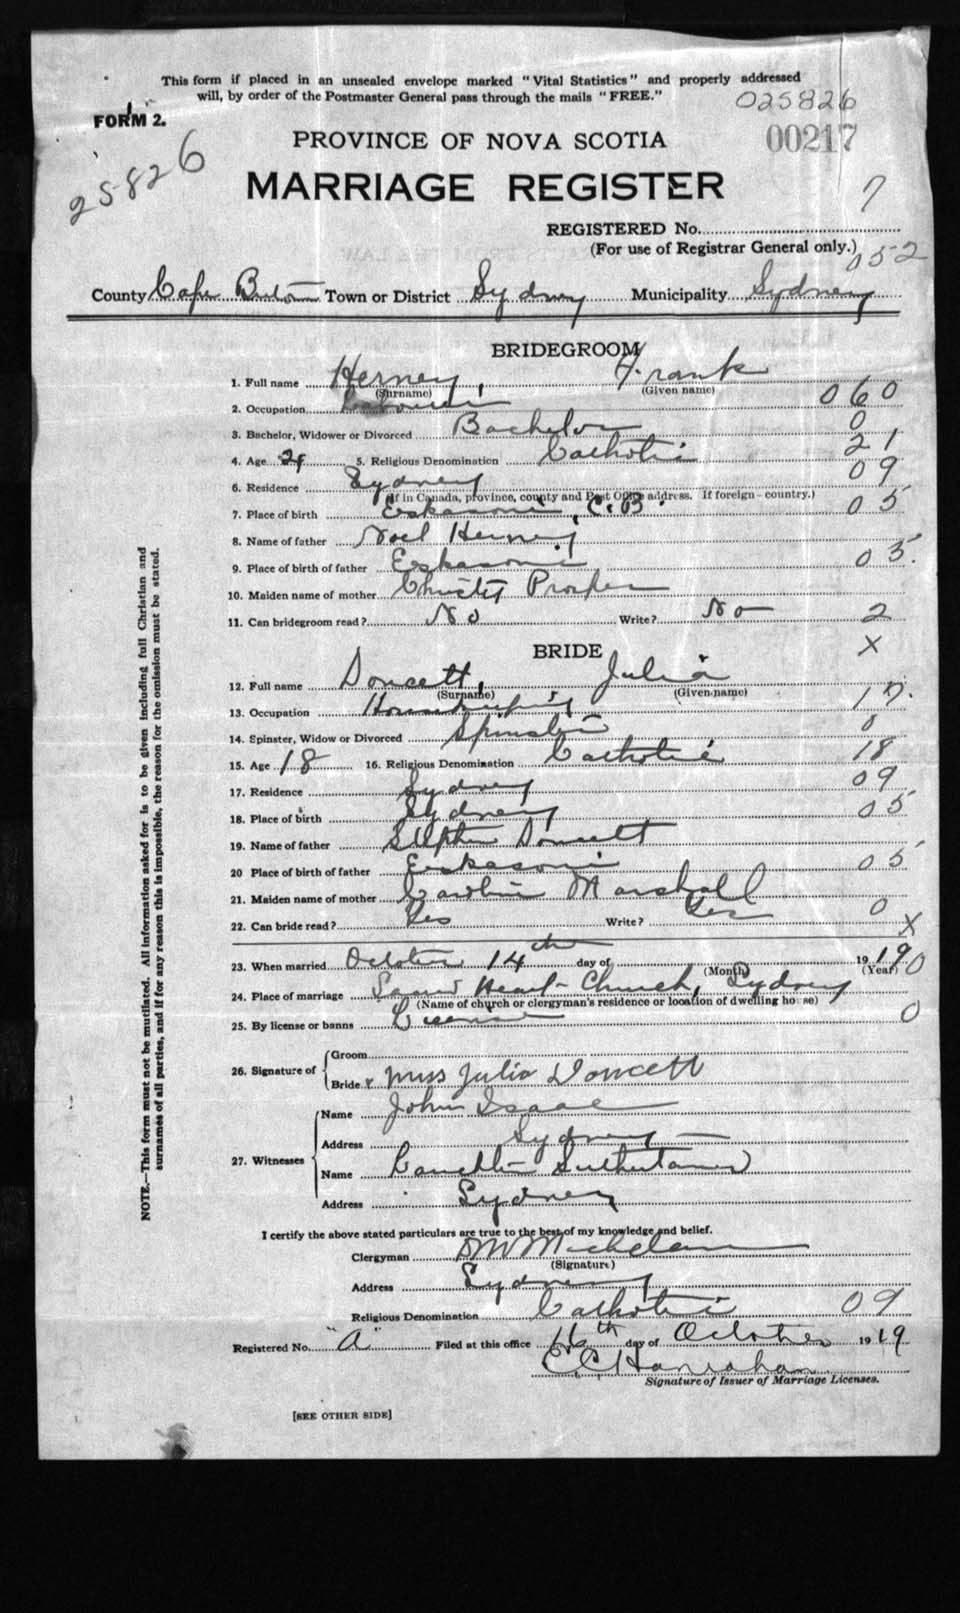 This form if placed in an unsealed envelope marked "Vital Statistics" and properly addressed
will, by order of the Postmaster General pass through the mails "FREE."
025826
FORM 2.
00217
25826
PROVINCE OF NOVA SCOTIA
MARRIAGE REGISTER
7
REGISTERED No.
(For use of Registrar General only.)
052
County Cape Breton Town or District Sydney Municipality Sydney
BRIDEGROOM
1. Full name Herney, Frank
(Surname) (Given name)
060
2. Occupation Laborer
3. Bachelor, Widower or Divorced Bachelor 0
4. Age 21 5. Religious Denomination Catholic 21
6. Residence Sydney 09
(If in Canada, province, county and Post Office address. If foreign - country.)
7. Place of birth Eskasoni, C.B. 05
8. Name of father Noel Herney
9. Place of birth of father Eskasoni 05.
10. Maiden name of mother Christy Prosper
11. Can bridegroom read? No Write? No 2
BRIDE X
12. Full name Doucett, Julia
(Surname) (Given name)
13. Occupation Housekeeping 17.
14. Spinster, Widow or Divorced Spinster 0
15. Age 18 16. Religious Denomination Catholic 18
17. Residence Sydney 09
18. Place of birth Sydney 05
19. Name of father Stephen Doucett
20 Place of birth of father Eskasoni 05
21. Maiden name of mother Caroline Marshall
22. Can bride read? Yes Write? Yes 0
X
23. When married October 14th day of 1919
(Month) (Year) 0
24. Place of marriage Sacred Heart Church, Sydney
(Name of church or clergyman's residence or location of dwelling house)
25. By license or banns License 0
26. Signature of
Groom
Bride x Miss Julia Doucett
27. Witnesses
Name John Isaac
Address Sydney
Name Sutherland
Address Sydney
I certify the above stated particulars are true to the best of my knowledge and belief.
Clergyman
(Signature)
Address Sydney
Religious Denomination Catholic 09
Registered No. "A" Filed at this office 16th day of October 1919
E. C. Hanrahan
Signature of Issuer of Marriage Licenses.
[SEE OTHER SIDE]
NOTE.—This form must not be mutilated. All information asked for is to be given including full Christian and
surnames of all parties, and if for any reason this is impossible, the reason for the omission must be stated.